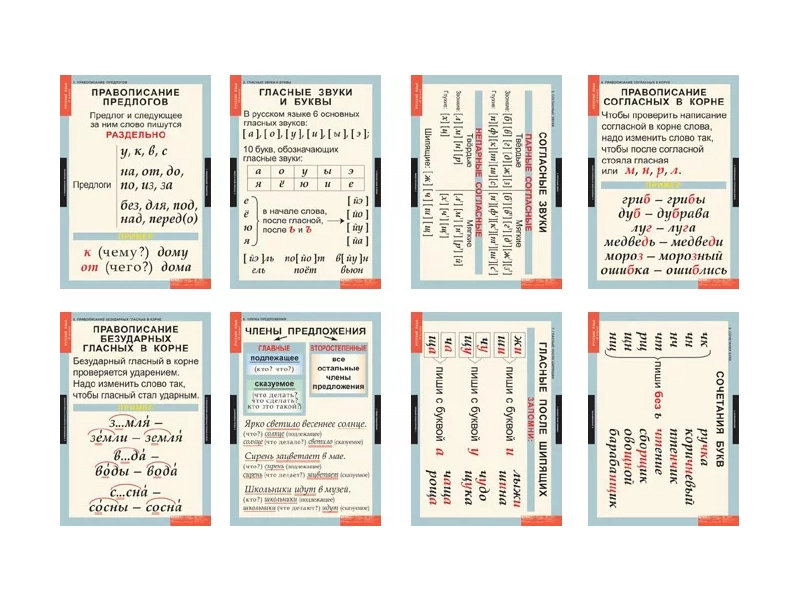 ПРАВОПИСАНИЕ
ПРЕДЛОГОВ
Предлог и следующее
за ним слово пишутся
РАЗДЕЛЬНО
Предлоги
у, к, в, с
на, от, до,
по, из, за
без, для, под,
над, перед(о)
к (чему?) дому
от (чего?) дома
ГЛАСНЫЕ ЗВУКИ
И БУКВЫ
В русском языке 6 основных
гласных звуков:
[а], [о], [у], [и], [ы], [э];
10 букв, обозначающих
гласные звуки:
а о у ы э
я ё ю и е
е
ё
ю
я
в начале слова,
после гласной,
после ь и ъ
[йэ]
[йо]
[йу]
[йа]
[йэ]ль по[йо]т в[йу]н
ель поёт вьюн
СОГЛАСНЫЕ ЗВУКИ
ПАРНЫЕ СОГЛАСНЫЕ
Твёрдые Мягкие
Звонкие: [б] [в] [г] [д] [ж] [з] [б'] [в'] [г'] [д'] [з']
Глухие: [п] [ф] [к] [т] [ш] [с] [п'] [ф'] [к'] [т'] [с']
НЕПАРНЫЕ СОГЛАСНЫЕ
Твёрдые Мягкие
Звонкие: [л] [м] [н] [р] [л'] [м'] [н'] [р'] [й]
Глухие: [х] [ц] [х'] [ч] [щ]
Шипящие: [ж] [ч] [ш] [щ]
ПРАВОПИСАНИЕ
СОГЛАСНЫХ В КОРНЕ
Чтобы проверить написание
согласной в корне слова,
надо изменить слово так,
чтобы после согласной
стояла гласная
или м, н, р, л.
гриб – грибы
дуб – дубрава
луг – луга
медведь – медведи
мороз – морозный
ошибка – ошиблись
ПРАВОПИСАНИЕ
БЕЗУДАРНЫХ
ГЛАСНЫХ В КОРНЕ
Безударный гласный в корне
проверяется ударением.
Надо изменить слово так,
чтобы гласный стал ударным.
з...мля́ –
зе́мли – земля́
в...да́ –
во́ды – вода́
с...сна́ –
со́сны – сосна́
ЧЛЕНЫ ПРЕДЛОЖЕНИЯ
ГЛАВНЫЕ
подлежащее
(кто? что?)
сказуемое
(что делать?
что сделать?
кто это такой?)
ВТОРОСТЕПЕННЫЕ
все
остальные
члены
предложения
Ярко светило весеннее солнце.
(что?) солнце (подлежащее)
солнце (что делало?) светило (сказуемое)
Сирень зацветает в мае.
(что?) сирень (подлежащее)
сирень (что делает?) зацветает (сказуемое)
Школьники идут в музей.
(кто?) школьники (подлежащее)
школьники (что делают?) идут (сказуемое)
ГЛАСНЫЕ ПОСЛЕ ШИПЯЩИХ
ЗАПОМНИ:
жи
ши
пиши с буквой и
лыжи
шина
чу
щу
пиши с буквой у
чудо
щука
ча
ща
пиши с буквой а
чаща
роща
СОЧЕТАНИЯ БУКВ
чк
чн
нч
чт
рщ
щн
нщ
пиши без ь
ручка
коричневый
птенчик
чтение
сборщик
овощной
барабанщик